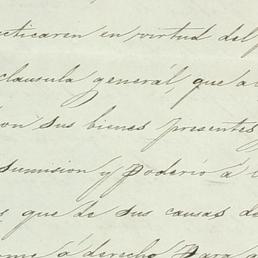 cticaren en virtud del p
clausula general, que a
on sus bienes presentes
sumision y poderio á l
s que de sus causas de
ome á derecho para a